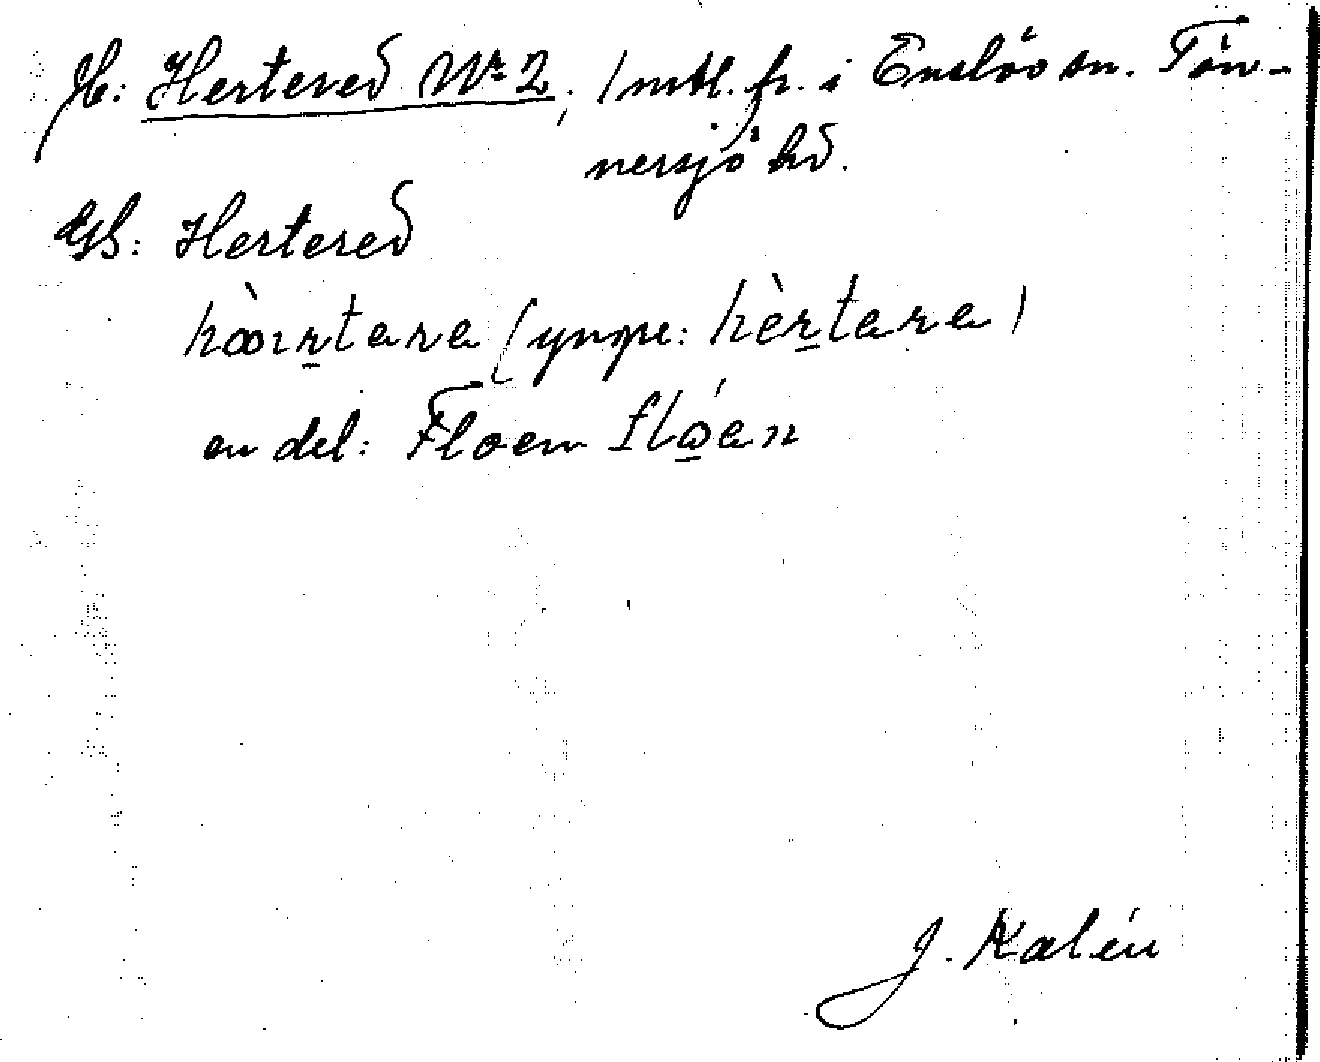 Jb: Hertered Nr 2, 1 mtl. fr. i Enslöv sn. Tön-
nersjö hd.
GS: Hertered
hæ̀r̠tara (yngre: hèr̠tara)
en del: Floen fló̠en
J. Kalén